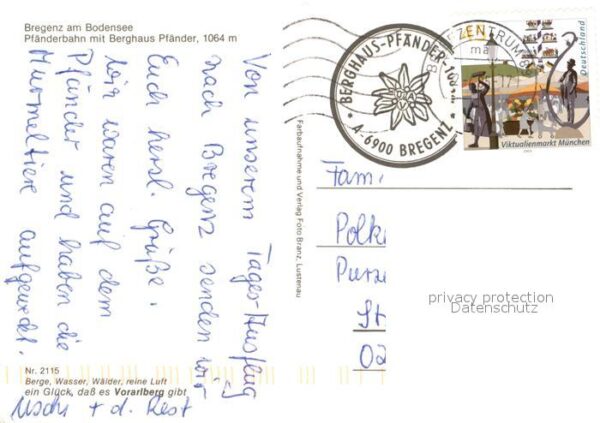 Bregenz am Bodensee
Pfänderbahn mit Berghaus Pfänder, 1064 m
Von unserem Tages-Ausflug
nach Bregenz senden wir
Euch herzl. Grüße.
Wir waren auf dem
Pfänder und haben die
Murmeltiere aufgeweckt.
Uschi + d. Rest
Nr. 2115
Berge, Wasser, Wälder, reine Luft
ein Glück, daß es Vorarlberg gibt
Farbaufnahme und Verlag Foto Branz, Lustenau
BERGHAUS-PFÄNDER
A-6900 BREGENZ
ZENTRUM
Deutschland
Viktualienmarkt München
Fam.
Polk
Purz
St
02
privacy protection
Datenschutz